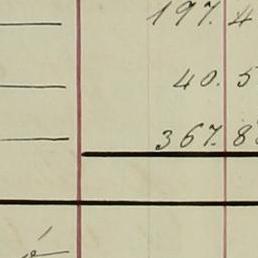 197. 4
40. 5
367. 8